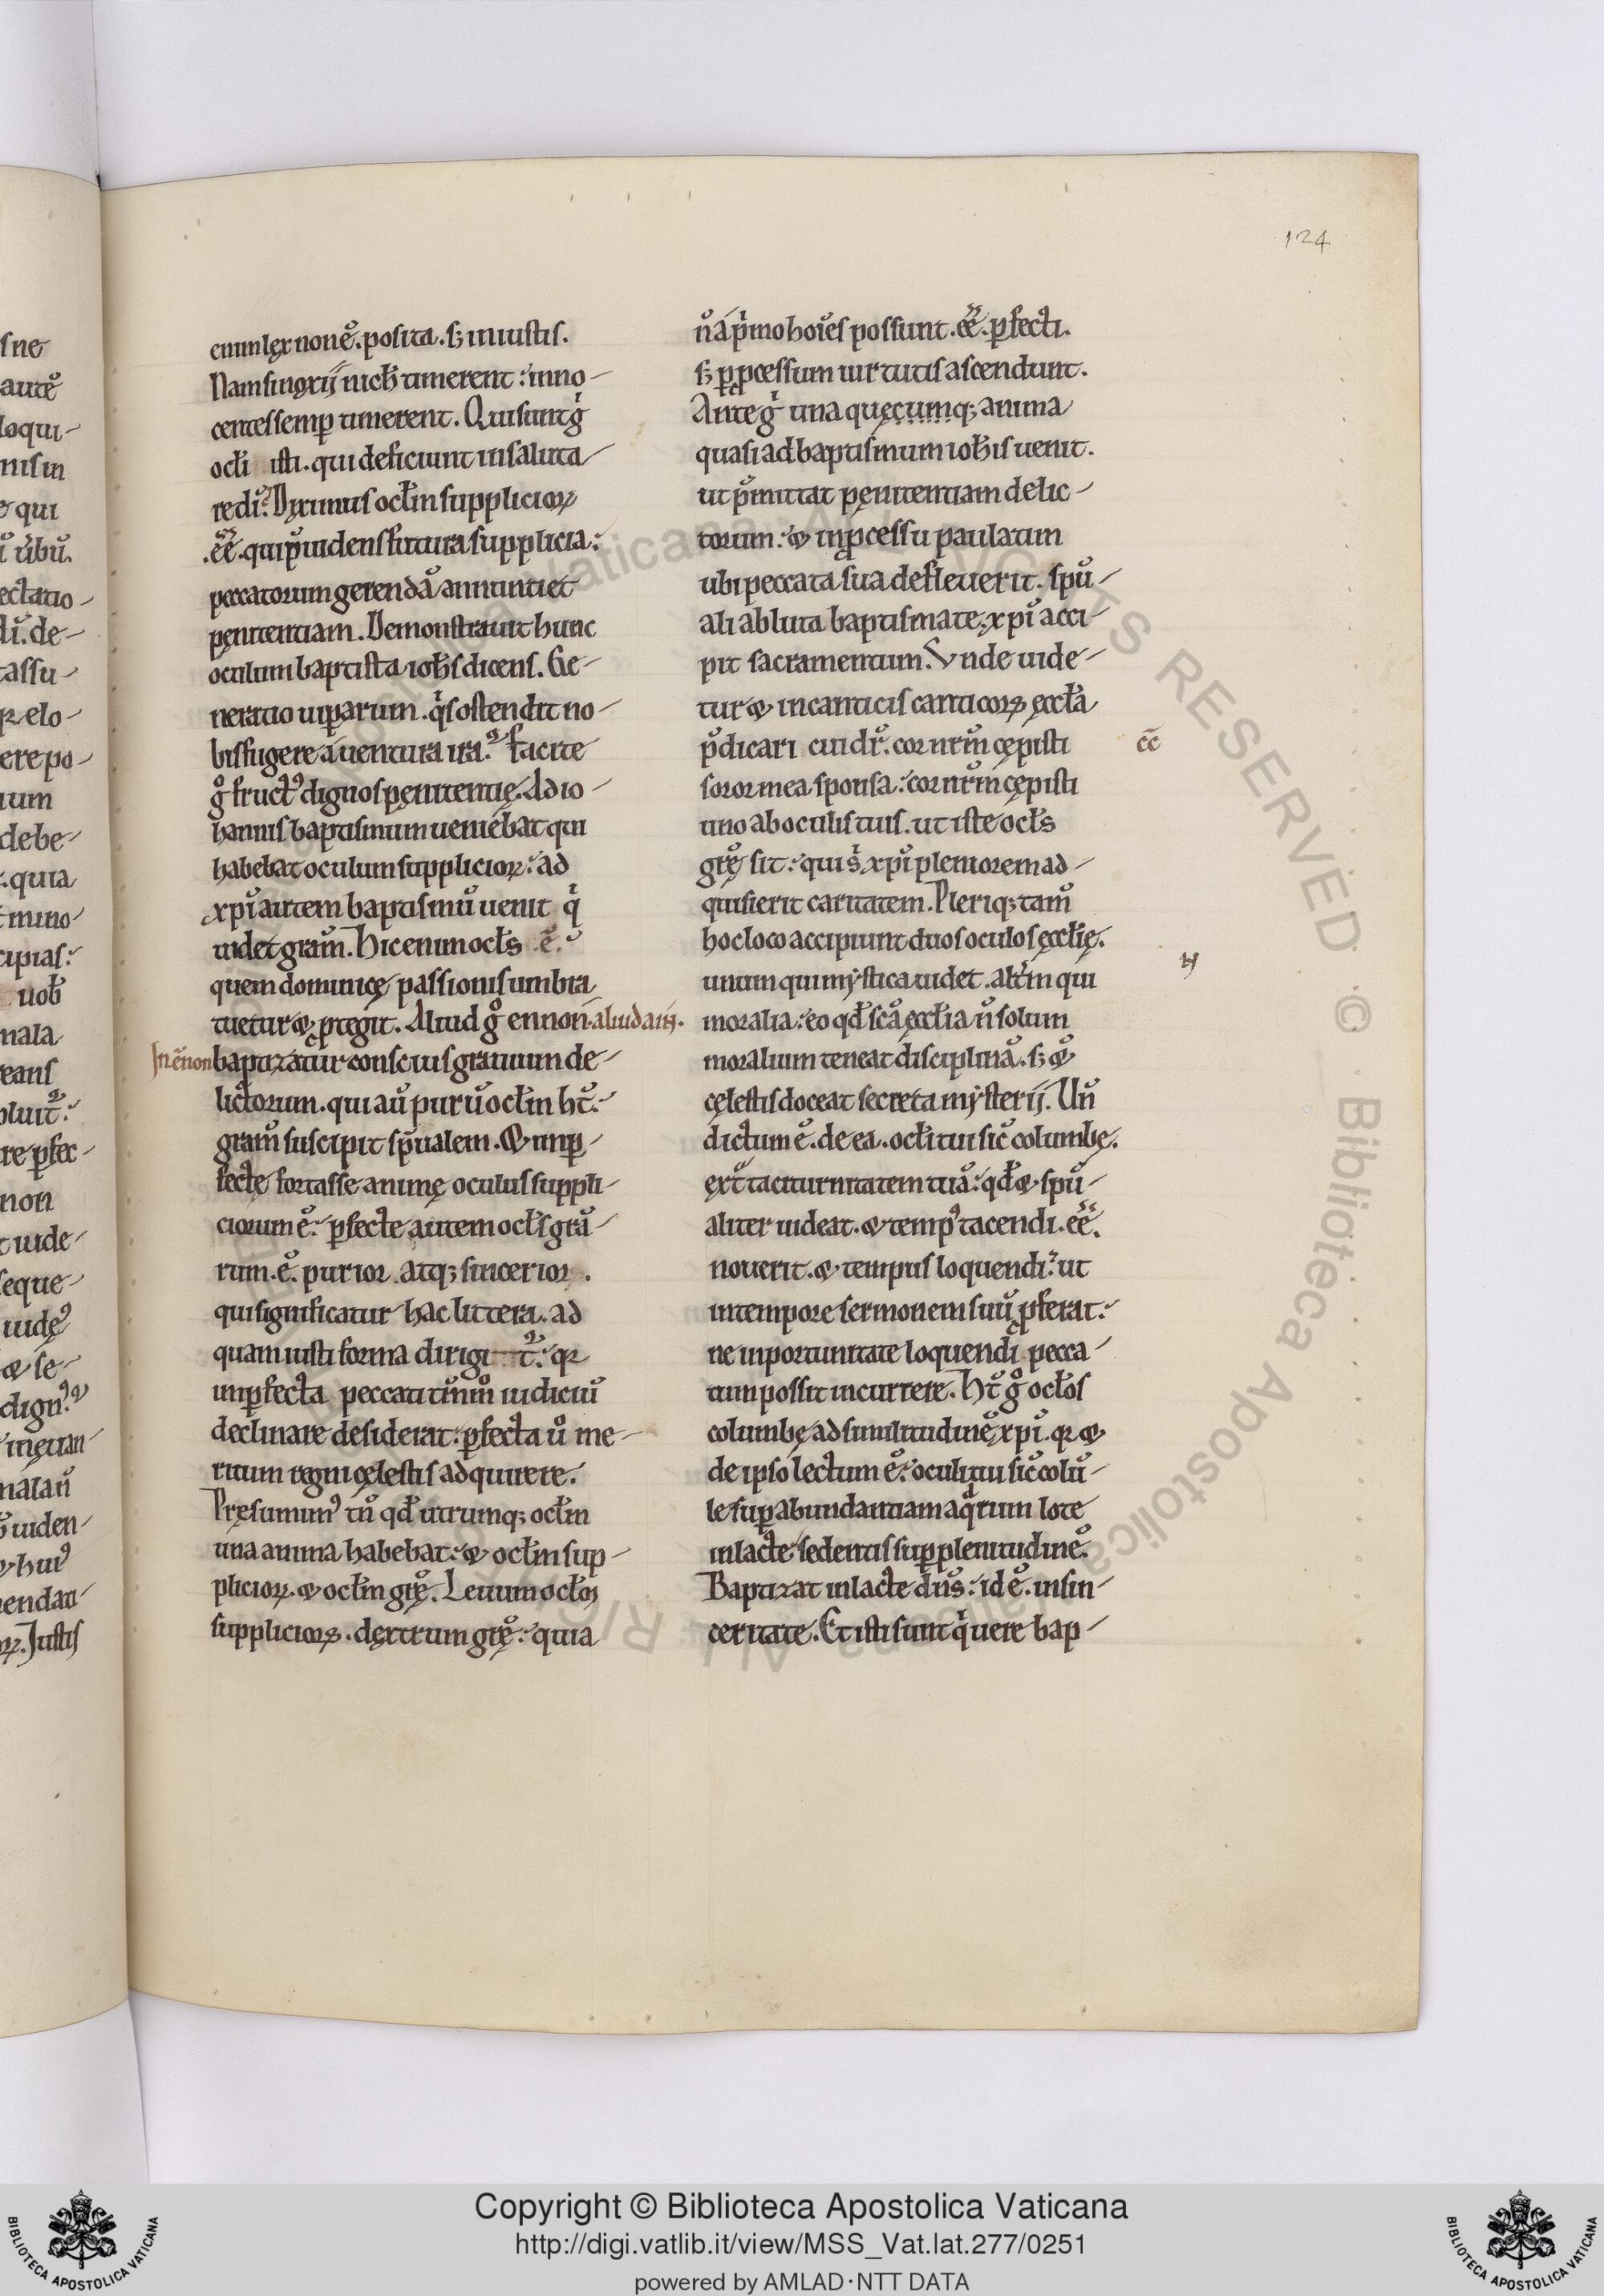 124
enim lex non ē. posita. s; iniustis.
Nam si noxij nich timerent: inno-
centes semp timerent. Qui sunt g
ocłi isti. qui deficiunt in saluta
re di? Diximus ocłm supplicior
.eē. qui puidens futura supplicia:
peccatorum gerendā annuntiet
pęnitentiam. Demonstrauit hunc
oculum baptista iohs dicens. Ge-
neratio uiperarum. qs ostendit no-
bis fugere a uentura ira? facite
g fruct dignos pęnitentię. Ad io-
hannis baptismum ueniebat qui
habebat oculum supplicior: ad
xpi autem baptismū uenit q
uidet gram. Hic enim ocłs ē.
quem dominicę passionis umbra
tuetur & ptegit. Aliud g ennon aliud ain.
In ēnon baptizatur conscius grauium de-
lictorum. qui aū purū ocłm ht:
gram suscipit spualem. & imp-
fectę fortasse animę oculus suppli-
ciorum ē. pfecte autem ocłs gra-
rum. ē. purior atq; sincerior.
qui significatur hac littera. ad
quam iusti forma dirigit: qr
impfecta peccati tm iudiciū
declinare desiderat: pfecta ū me-
ritum regni cęlestis adquirere.
Pręsumim tn qd utrumq; ocłm
una anima habebat: & ocłm sup-
plicior. & ocłm grę. Leuum ocłm
supplicior. dextrum grę: quia
n a pmo hoies possunt. eē. pfecti.
s; p pcessum uirtutis ascendunt.
Ante g una quęcumq; anima
quasi ad baptismum iohis uenit.
ut pmittat pęnitentiam delic-
torum: & in pcessu paulatim
ubi peccata sua defleuerit. spū-
ali abluta baptismate, xpi acci-
pit sacramentum. Vnde uide-
tur & in canticis canticor ęccła
pdicari cui dr. cor nrm cępisti
cc
soror mea sponsa: cor nrm cępisti
uno ab oculis tuis. ut iste ocłs
grę sit: qui s xpi pleniorem ad-
quisierit caritatem. Pleriq; tam
hoc loco accipiunt duos oculos ęccłię.
unum qui mystica uidet. altm qui
moralia: eo qd scā ęccłia n solum
moralium teneat disciplinā. s; &
cęlestis doceat secreta mysterij. Un
dictum ē. de ea. ocłi tui sic columbę.
ext taciturnitatem tuā: qd & spū-
aliter uideat. & temp tacendi. eē.
nouerit. & tempus loquendi: ut
in tempore sermonem suū pferat:
ne inportunitate loquendi pecca-
tum possit incurrere. Ht g ocłos
columbę ad similitudinē xpi. qr &
de ipso lectum ē: oculi tui sic colū-
le sup abundantiam aqrum lote
in lacte sedentis sup plenitudinē.
Baptizat in lacte dns: id ē. in sin-
ceritate. Et isti sunt q uere bap-
Copyright © Biblioteca Apostolica Vaticana
http://digi.vatlib.it/view/MSS_Vat.lat.277/0251
powered by AMLAD·NTT DATA